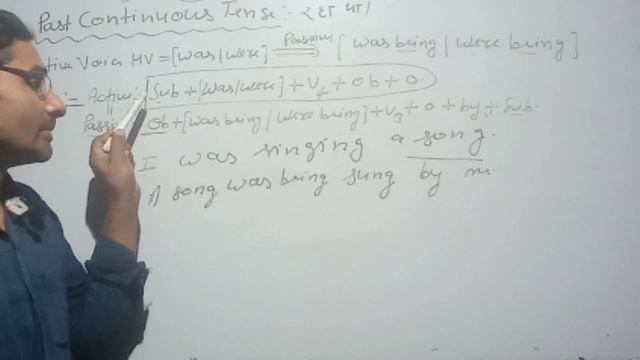 Past Continuous Tense:- रहा था।
tive Voice HV = [was/were] Passive ⟹ [was being / were being]
:- Active: Sub + [was/were] + V₁ + Ob + O.
Passi Ob + [was being / were being] + V₃ + O + by + Sub.
I was singing a song.
A song was being sung by me